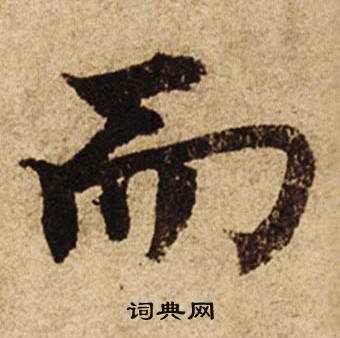 而
词典网